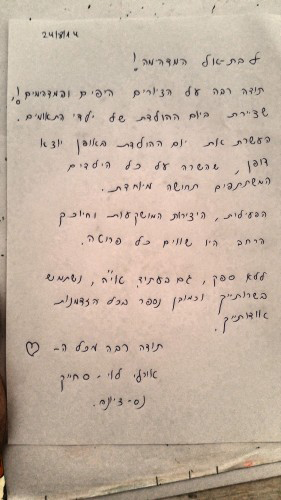 24/8/14
לבת-אל המדהימה!
תודה רבה על הציורים היפים והמדהימים!,
שציירת ביום ההולדת של ילדי התאומים.
העשרת את יום ההולדת באופן יוצא
דופן, שהשרה על כל הילדים
המשתתפים תחושה מיוחדת.
הפעילות, היצירות המושקעות וחיוכך
הרחב היו שווים כל פרוטה.
ללא ספק, גם בעתיד אי"ה, נשתמש
בשרותייך וכמובן נספר בכל הזדמנות
אודותייך.
תודה רבה מכל ה-
אורלי לוי-
נס-ציונה.